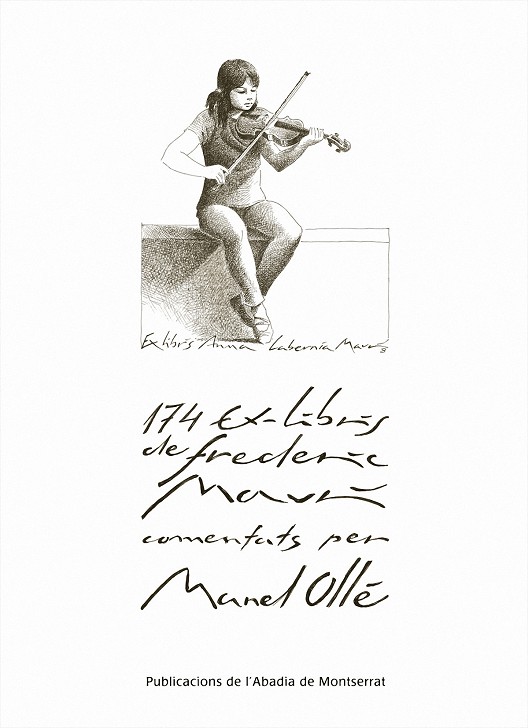 Ex libris Anna Labernia Maurí
174 ex-libris
de frederic
Maurí
comentats per
Manel Ollé
Publicacions de l'Abadia de Montserrat